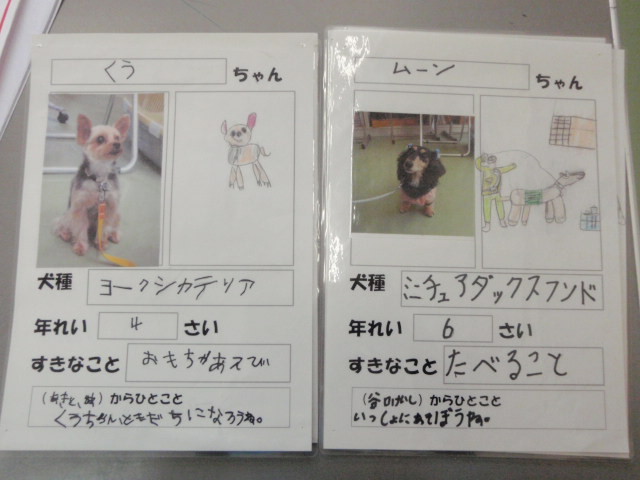 くう ちゃん
犬種 ヨークシカテリア
年れい 4 さい
すきなこと おもちゃあそび
からひとこと
くうちゃんともだちになろうね。
ムーン ちゃん
犬種 ミニチュアダックスフンド
年れい 6 さい
すきなこと たべること
からひとこと
いっしょにあそぼうね。